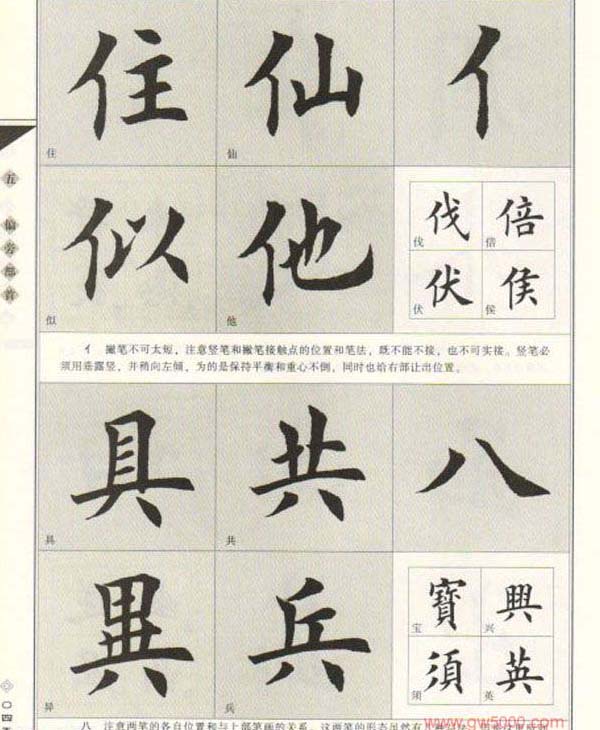 亻 仙 住
仙 住
他 似
伐 倍
伐 倍
伏 侯
伏 侯
他 似
亻 撇笔不可太短，注意竖笔和撇笔接触点的位置和笔法，既不能不接，也不可实接。竖笔必
须用垂露竖，并稍向左倾，为的是保持平衡和重心不倒，同时也给右部让出位置。
八 共 具
共 具
異 兵
寶 興
宝 兴
須 英
须 英
异 兵
八 注意两笔的各自位置和与上部笔画的关系。这两笔的形态虽然有
www.qw5000.com
五 偏旁部首
〇四